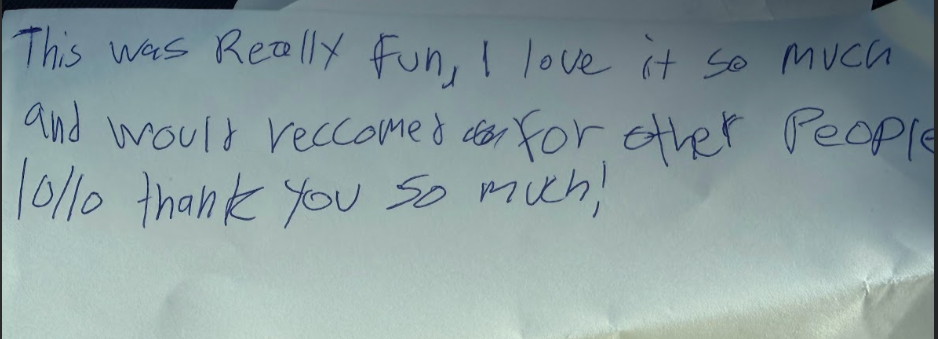 This was Really fun, I love it so much
and would reccomed for other People
10/10 thank you so much!